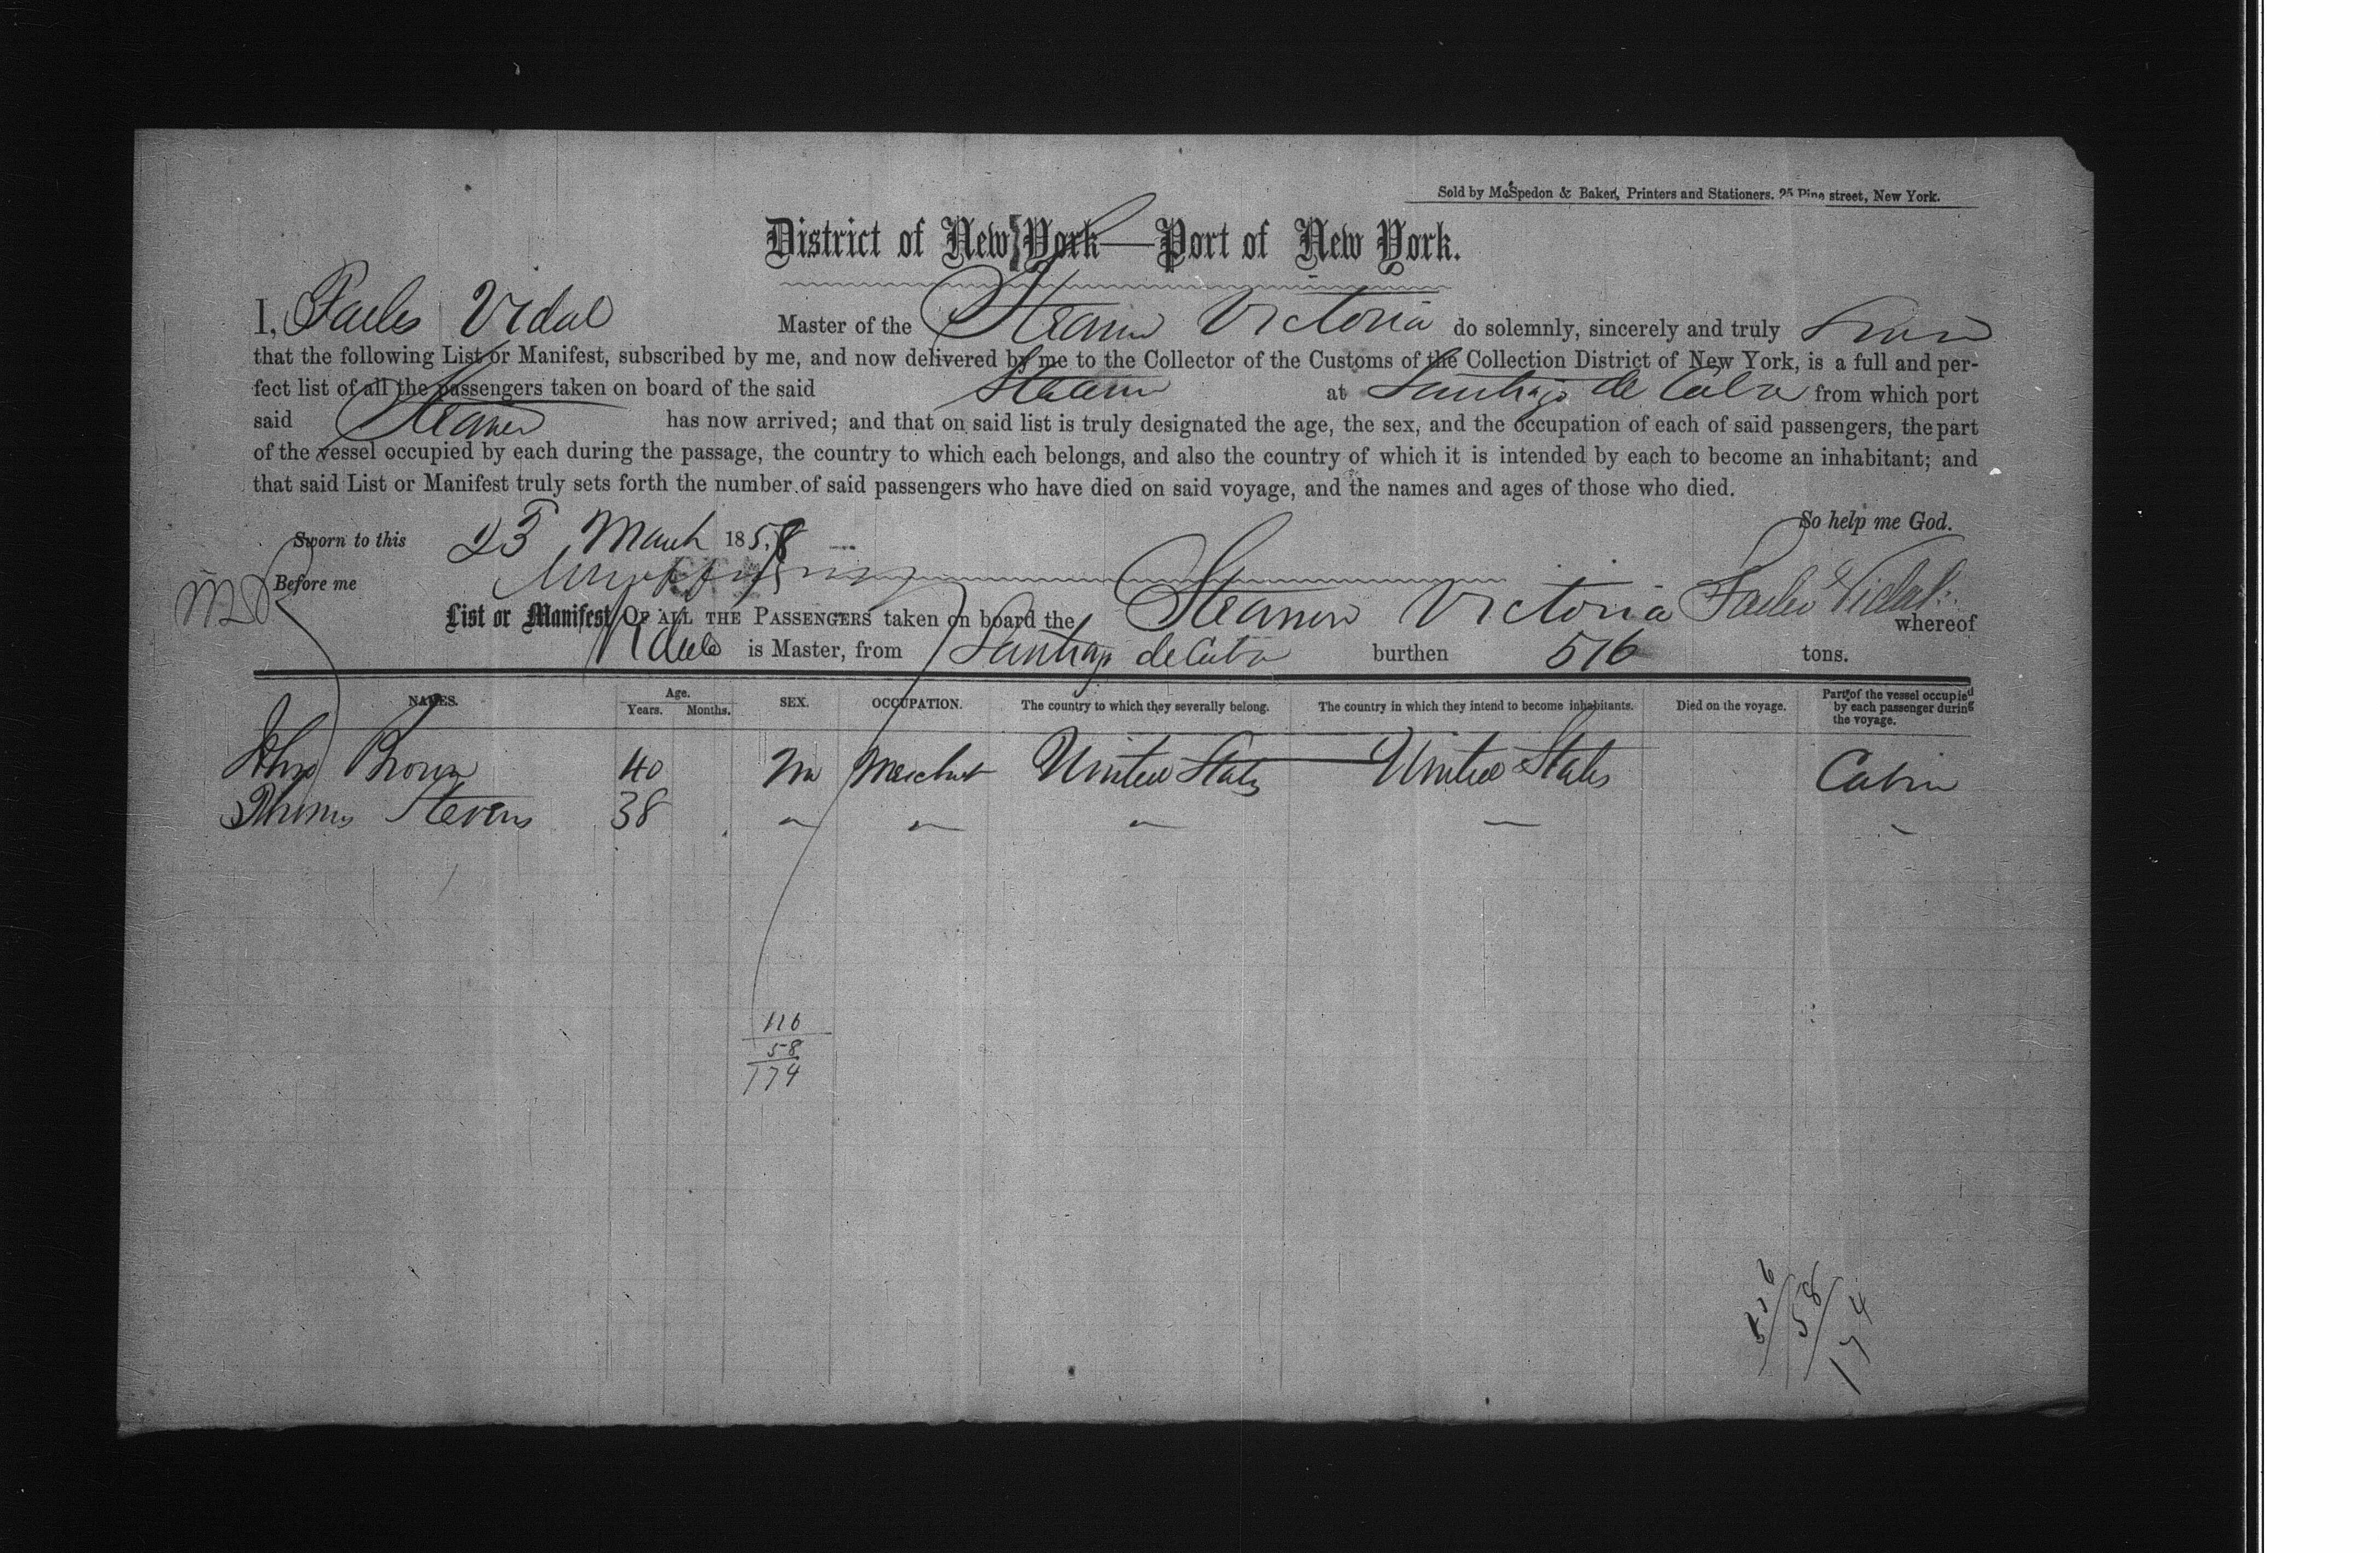 Sold by McSpedon & Baker, Printers and Stationers. 25 Pine street, New York.
District of New York—Port of New York.
I, Vidal Master of the Steamer Victoria do solemnly, sincerely and truly Swear
that the following List or Manifest, subscribed by me, and now delivered by me to the Collector of the Customs of the Collection District of New York, is a full and per-
fect list of all the passengers taken on board of the said Steamer at Santiago de Cuba from which port
said Steamer has now arrived; and that on said list is truly designated the age, the sex, and the occupation of each of said passengers, the part
of the vessel occupied by each during the passage, the country to which each belongs, and also the country of which it is intended by each to become an inhabitant; and
that said List or Manifest truly sets forth the number of said passengers who have died on said voyage, and the names and ages of those who died.
So help me God.
Sworn to this 23 March 1858
Before me
Vidal
List or Manifest OF ALL THE PASSENGERS taken on board the Steamer Victoria whereof
is Master, from Santiago de Cuba burthen 516 tons.
NAMES. Age. Years. Months. SEX. OCCUPATION. The country to which they severally belong. The country in which they intend to become inhabitants. Died on the voyage. Part of the vessel occupied by each passenger during the voyage.
John Brown 40 m Merchant United States United States Cabin
Thomas Stevens 38 " " " " "
116
58
174
58
174